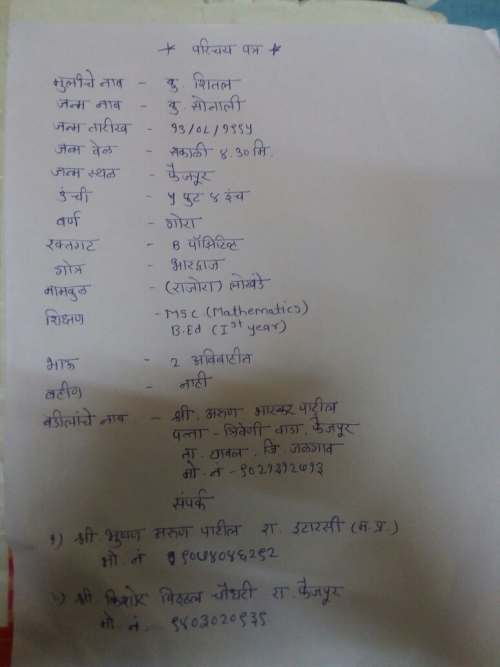 * परिचय पत्र *
मुलीचे नाव - कु. शितल
जन्म नाव - कु. सोनाली
जन्म तारीख - १३/०८/१९९५
जन्म वेळ - सकाळी ४.३० मि.
जन्म स्थळ - फैजपूर
उंची - ५ फुट ४ इंच
वर्ण - गोरा
रक्तगट - B पॉसिटिव्ह
गोत्र - भारद्वाज
नामकुळ - (राजोरा) लोखंडे
शिक्षण - MSC (Mathematics)
B.Ed (Ist year)
भाऊ - 2 अविवाहीत
बहीण - नाही
वडीलांचे नाव - श्री. अरुण भास्कर पाटील
पत्ता - त्रिवेणी वाडा, फैजपूर
ता. यावल, जि. जळगाव
मो. नं -
संपर्क
१) श्री भुषण अरुण पाटील रा. इटारसी (म.प्र.)
मो. नं
२) श्री. किशोर विठ्ठल चौधरी रा. फैजपूर
मो. नं.